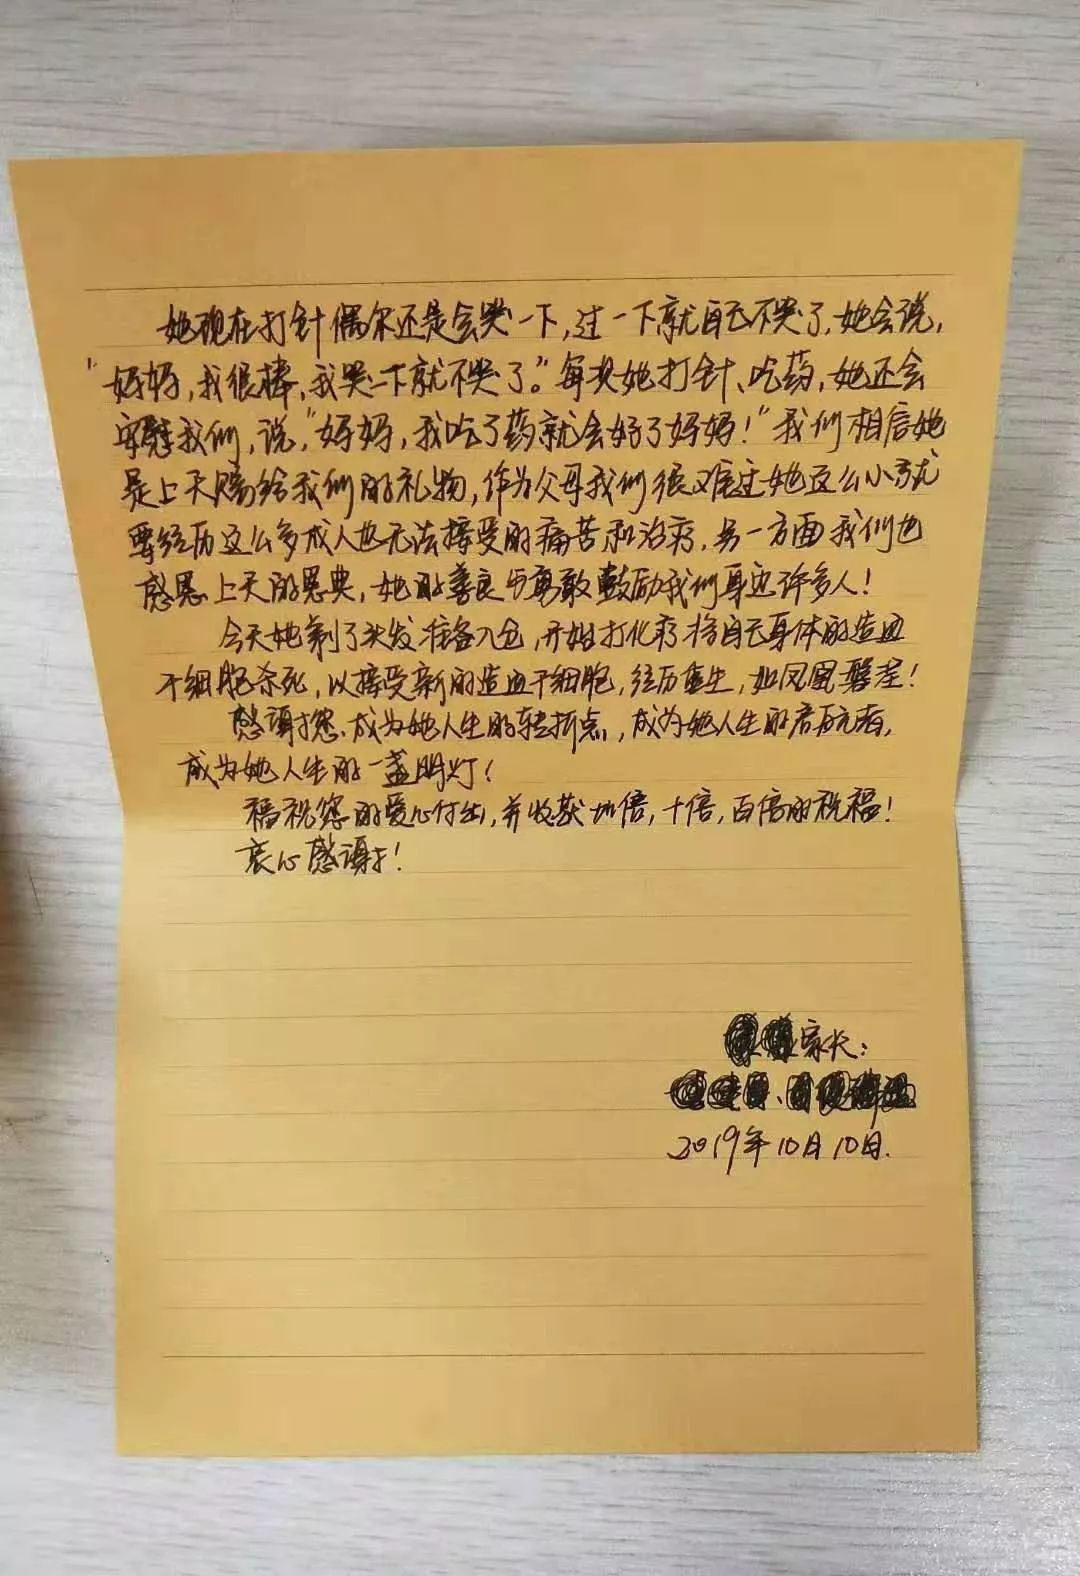 她现在打针偶尔还是会哭一下,过一下就自己不哭了,她会说,
“妈妈,我很棒,我哭一下就不哭了。”每次她打针、吃药,她还会
安慰我们,说,“妈妈,我吃了药就会好了妈妈!”我们相信她
是上天赐给我们的礼物,作为父母我们很难过她这么小就
要经历这么多成人也无法接受的痛苦和治疗,另一方面我们也
感恩上天的恩典,她的善良与勇敢鼓励我们身边许多人!
今天她剃了头发准备入仓,开始打化疗将自己身体的造血
干细胞杀死,以接受新的造血干细胞,经历重生,如凤凰磐差!
感谢您.成为她人生的转折点,成为她人生的
成为她人生的一盏明灯!
福祝您的爱心付出,并收获加倍,十倍,百倍的祝福!
衷心感谢!
家长:
2019年10月10日.